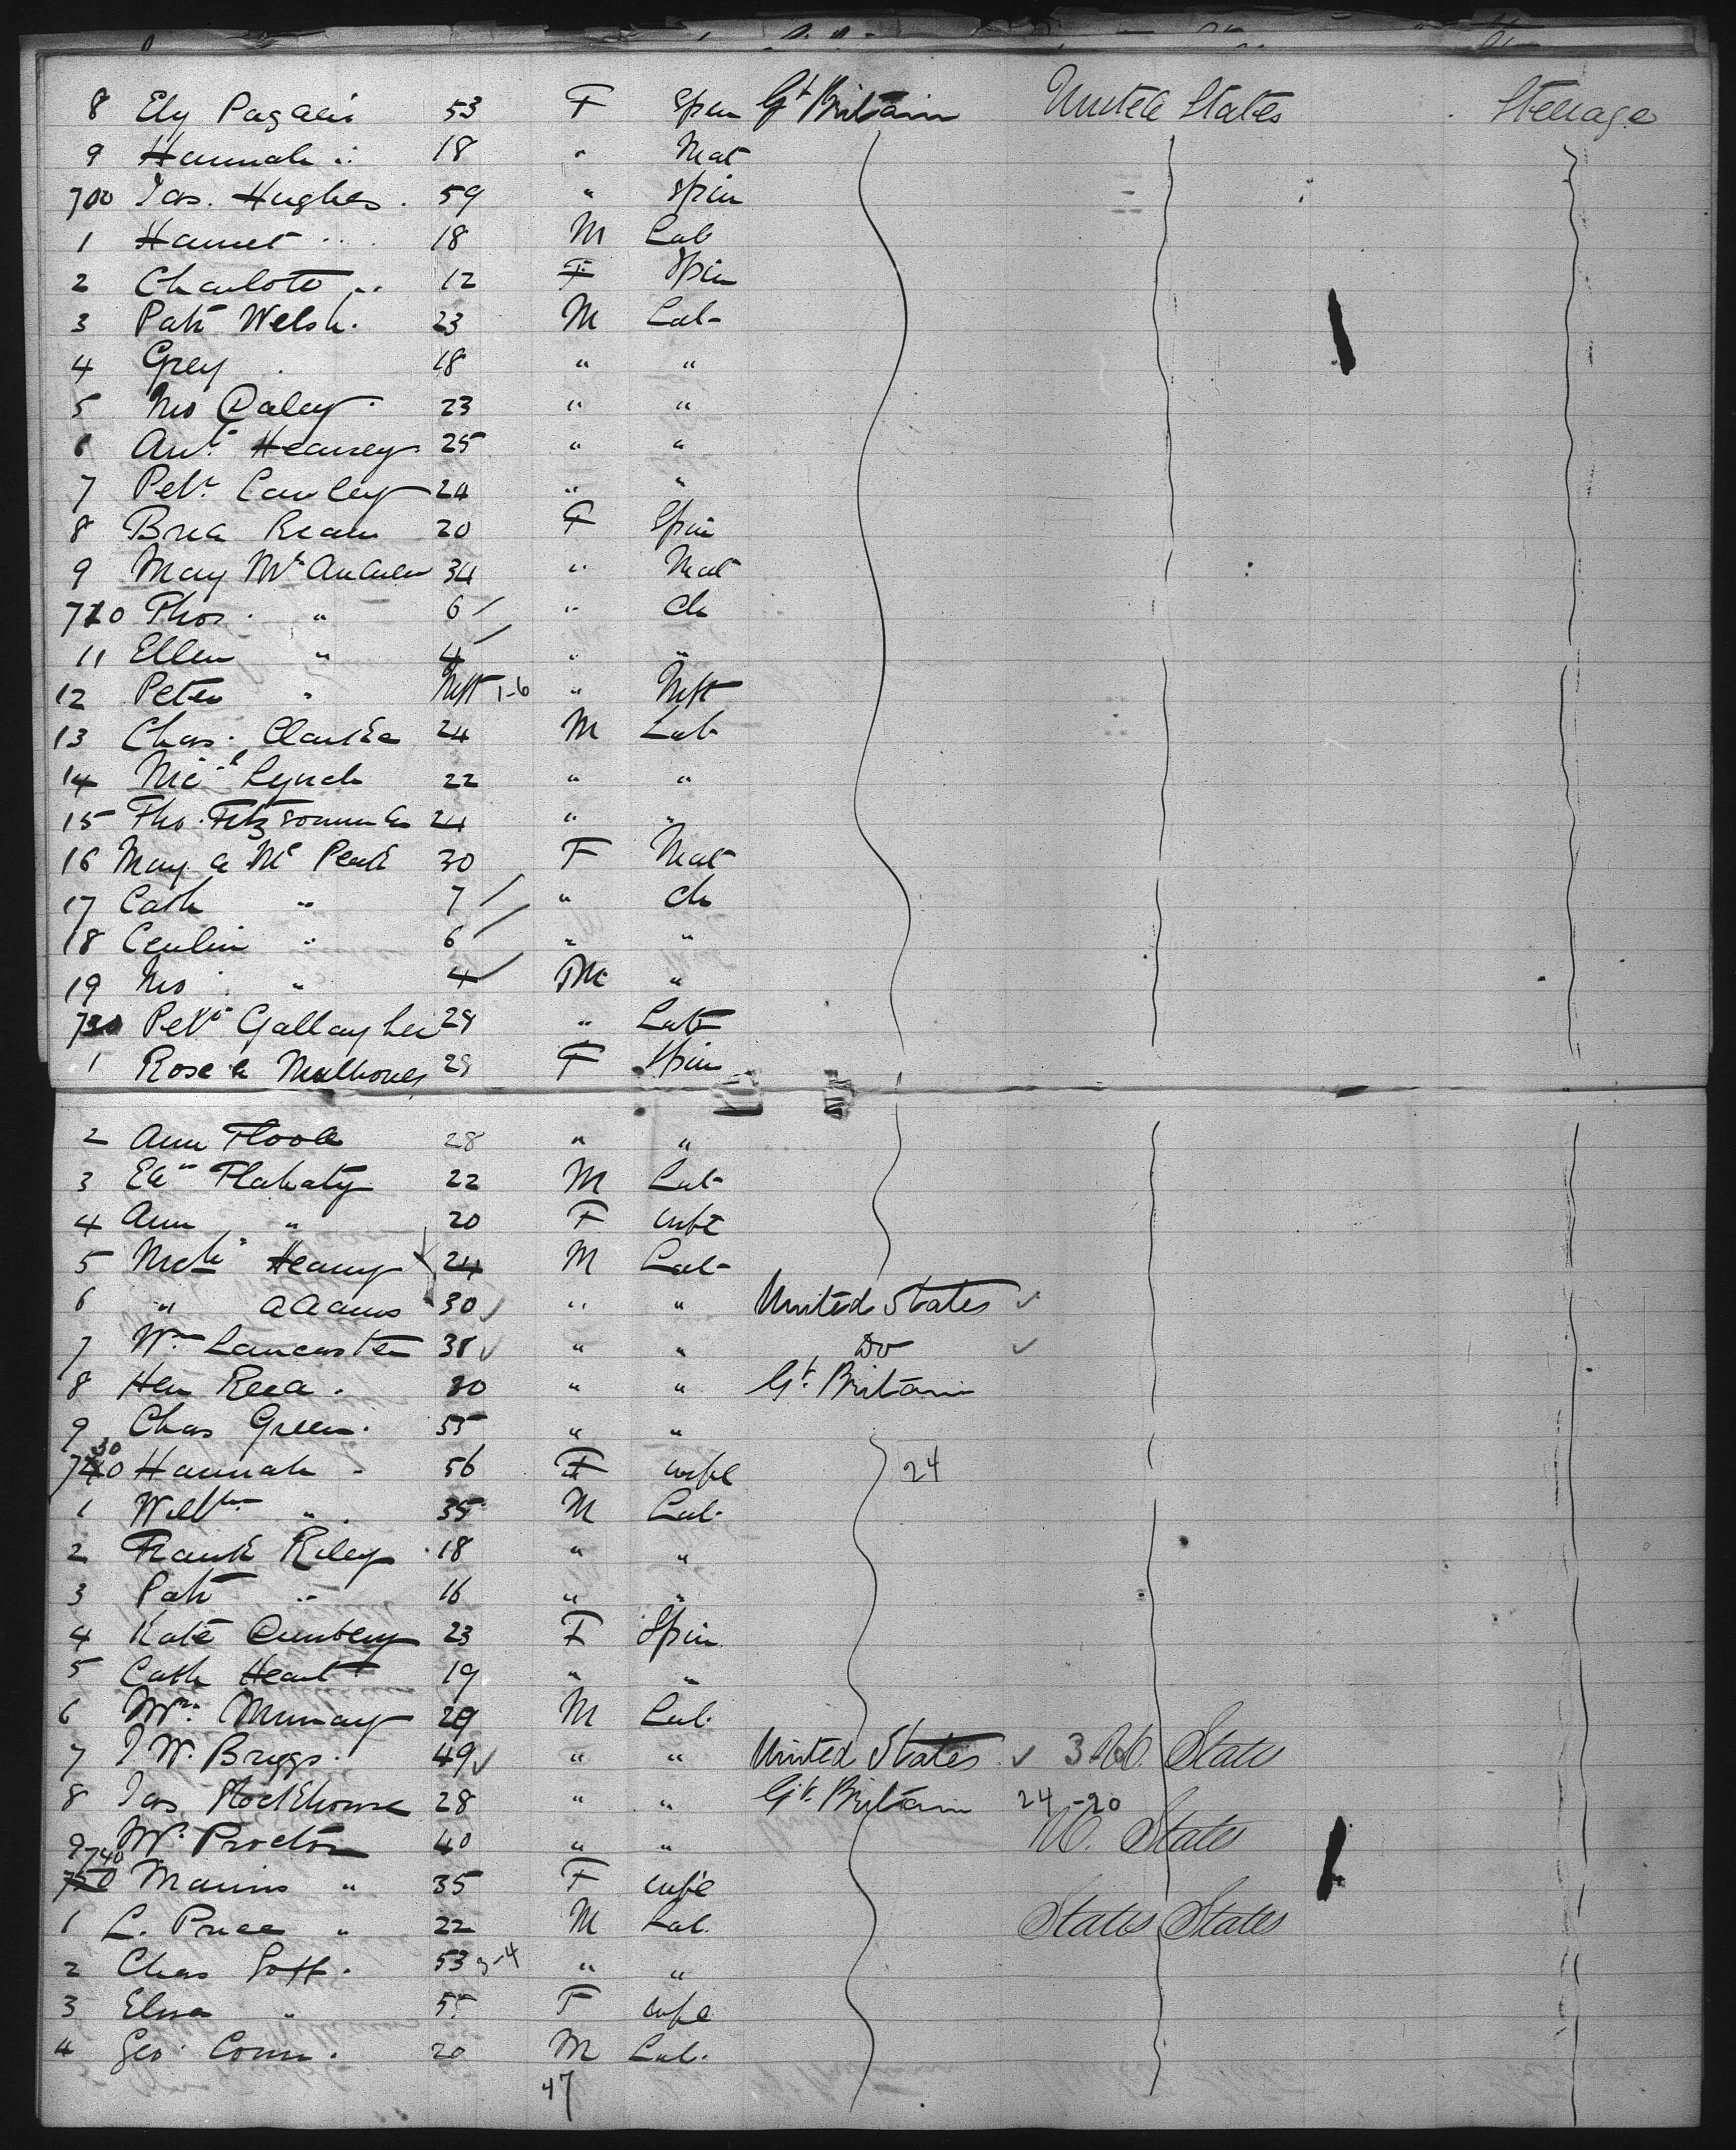 8 Ely 53 F Spin Gt Britain United States Steerage
9 Hannah " 18 " Mat
700 Jas. Hughes. 59 " Spin
1 18 M Lab
2 Charlote " 12 F Spin
3 Patk Welsh. 23 M Lab
4 Grey 18 " "
5 Daley 23 " "
6 Ant. 25 " "
7 Petr. Cauley 24 " "
8 20 F Spin
9 Mary 34 " Mat
710 Thos. " 6 " Ch
11 Ellen " 4 " "
12 Peter " Inft 1-6 " Inft
13 Chas. Clarke 24 M Lab
14 Micl Lynch 22 " "
15 Tho. 24 " "
16 Mary a Mc Peak 30 F Mat
17 Cath " 7 " Ch
18 " 6 " "
19 " 4 M "
720 Petr Gallagher 29 " Lab
1 Rose a 29 F Spin
2 Ann 28 " "
3 Flahaty 22 M Lab
4 Ann " 20 F wife
5 Heany 24 M Lab
6 " Adams 30 " " United States
7 Wm Lancaster 38 " " Do
8 Hen 30 " " Gt. Britain
9 Chas Green. 55 " "
30
740 Hannah " 56 F wife 24
1 Willm " 35 M Lab.
2 Frank Riley 18 " "
3 Patk " 16 " "
4 Kate 23 F Spin
5 Cath 19 " "
6 Wm. Murray 29 M Lab.
7 J W. Briggs. 49 " " United States 3 U. States
8 Jas 28 " " Gt. Britain 24-20
9 Wm Proctor 40 " " U. States
740
750 " 35 F wife
1 L. Price " 22 M Lab. States States
2 Chas Goff. 53 3-4 " "
3 Eliza " 55 F wife
4 Geo Conn. 20 M Lab.
47